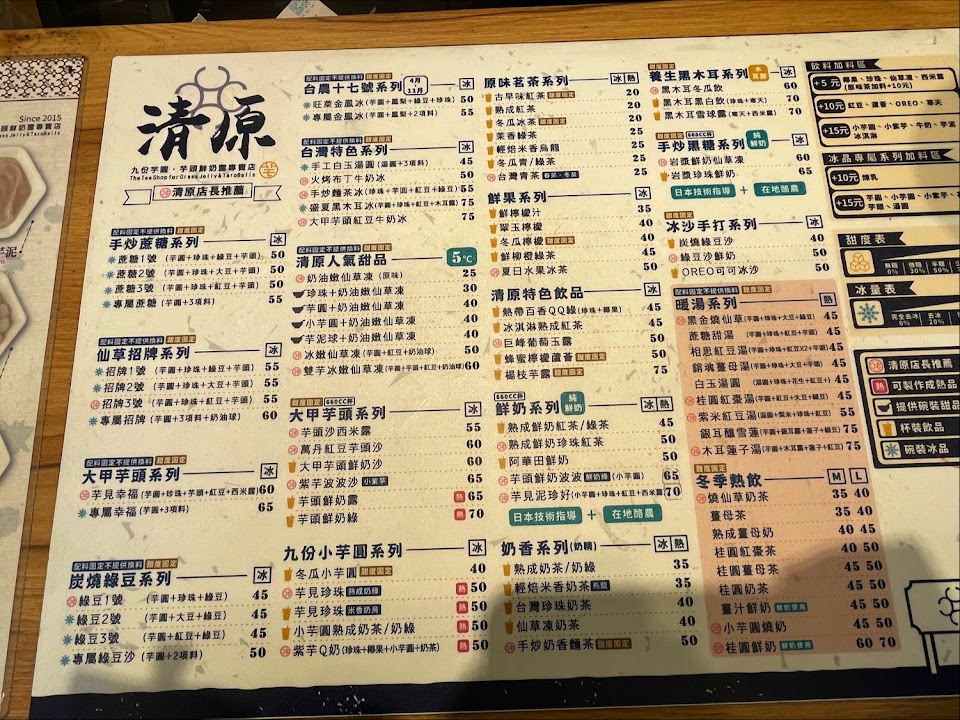 Since 2015
清原
九份芋圓、芋頭鮮奶露專賣店
The Tea Shop for Grass Jelly & Taro Balls
清原店長推薦
配料固定不提供換料 甜度固定
手炒蔗糖系列 冰
蔗糖1號 (芋圓+珍珠+綠豆+芋頭) 50
蔗糖2號 (芋圓+珍珠+大豆+芋頭) 50
蔗糖3號 (芋圓+珍珠+紅豆+芋頭) 50
專屬蔗糖 (芋圓+3項料) 55
配料固定不提供換料 甜度固定
仙草招牌系列 冰
招牌1號 (芋圓+珍珠+綠豆+芋頭) 55
招牌2號 (芋圓+珍珠+大豆+芋頭) 55
招牌3號 (芋圓+珍珠+紅豆+芋頭) 55
專屬招牌 (芋圓+3項料+奶油球) 60
配料固定不提供換料 甜度固定
大甲芋頭系列 冰
芋見幸福 (芋圓+珍珠+芋頭+紅豆+西米露) 60
專屬幸福 (芋圓+3項料) 65
配料固定不提供換料 甜度固定
炭燒綠豆系列 冰
綠豆1號 (芋圓+珍珠+綠豆) 45
綠豆2號 (芋圓+大豆+綠豆) 45
綠豆3號 (芋圓+紅豆+綠豆) 45
專屬綠豆沙 (芋圓+2項料) 50
配料固定不提供換料 甜度固定
台農十七號系列 4月-11月 冰
旺萊金鳳冰 (芋圓+鳳梨+綠豆+珍珠) 50
專屬金鳳冰 (芋圓+鳳梨+2項料) 55
配料固定不提供換料 甜度固定
台灣特色系列 冰
手工白玉湯圓 (湯圓+3項料) 45
火烤布丁牛奶冰 50
手炒麵茶冰 (珍珠+芋圓+紅豆+綠豆) 55
盛夏黑木耳冰 (芋圓+珍珠+紅豆+木耳露) 75
大甲芋頭紅豆牛奶冰 75
配料固定不提供換料 甜度固定
清原人氣甜品 5°C
奶油嫩仙草凍 (原味) 25
珍珠+奶油嫩仙草凍 30
芋圓+奶油嫩仙草凍 40
小芋圓+奶油嫩仙草凍 40
芋泥球+奶油嫩仙草凍 40
冰嫩仙草凍 (芋圓+紅豆+奶油球) 50
雙芋冰嫩仙草凍 (芋圓+芋頭+紅豆+奶油球) 60
甜度固定 660CC杯
大甲芋頭系列 冰
芋頭沙西米露 55
萬丹紅豆芋頭沙 60
大甲芋頭鮮奶沙 60
紫芋波波沙 小紫芋 65
芋頭鮮奶露 熱 65
芋頭鮮奶綠 熱 70
九份小芋圓系列 冰
冬瓜小芋圓 甜度固定 40
芋見珍珠 熟成奶綠 熱 50
芋見珍珠 米香奶烏 熱 50
小芋圓熟成奶茶/奶綠 熱 50
紫芋Q奶 (珍珠+椰果+小芋圓+奶茶) 熱 50
原味茗茶系列 冰 熱
古早味紅茶 甜度固定 20
熟成紅茶 20
冬瓜冰茶 甜度固定 20
茉香綠茶 20
輕焙米香烏龍 25
冬瓜青/綠茶 25
台灣青茶 春茶、冬茶 25
鮮果系列 冰
鮮檸檬汁 35
翠玉檸檬 40
冬瓜檸檬 甜度固定 40
鮮柳橙綠茶 45
夏日水果冰茶 50
清原特色飲品 冰
熱帶百香QQ綠 (珍珠+椰果) 45
冰淇淋熟成紅茶 45
巨峰葡萄玉露 50
蜂蜜檸檬蘆薈 甜度固定 50
楊枝芋露 甜度固定 75
660CC杯
鮮奶系列 純鮮奶 冰 熱
熟成鮮奶紅茶/綠茶 45
熟成鮮奶珍珠紅茶 50
阿華田鮮奶 50
芋頭鮮奶波波 鮮奶綠 (小芋圓) 65
芋見泥珍好 (小芋圓+珍珠+紅豆+西米露) 70
日本技術指導 + 在地酪農
奶香系列(奶精) 冰 熱
熟成奶茶/奶綠 35
輕焙米香奶茶 烏龍 35
台灣珍珠奶茶 40
仙草凍奶茶 40
手炒奶香麵茶 甜度固定 50
甜度固定
養生黑木耳系列 水耳露 冰
黑木耳冬瓜飲 60
黑木耳黑白飲 (珍珠+寒天) 70
黑木耳雪球露 (寒天+西米露) 70
甜度固定 660CC杯
手炒黑糖系列 純鮮奶 冰
岩漿鮮奶仙草凍 60
岩漿珍珠鮮奶 65
日本技術指導 + 在地酪農
甜度固定
冰沙手打系列 冰
炭燒綠豆沙 40
綠豆沙鮮奶 50
OREO可可冰沙 50
配料固定不提供換料 甜度固定
暖湯系列 熱
黑金燒仙草 (芋圓+珍珠+大豆+綠豆) 45
蔗糖甜湯 (芋圓+珍珠+紅豆+芋頭) 45
相思紅豆湯 (芋圓+珍珠+紅豆X2+芋頭) 45
銷魂薑母湯 (芋圓+珍珠+紅豆+芋頭) 45
白玉湯圓 (湯圓+珍珠+花生+紅豆) 45
桂圓紅棗湯 (芋圓+珍珠+大豆+紅豆) 45
紫米紅豆湯 (湯圓+紫米+珍珠+紅豆) 55
銀耳釀雪蓮 (芋圓+銀耳露+蓮子+紅豆) 75
木耳蓮子湯 (芋圓+木耳露+蓮子+紅豆) 75
甜度固定
冬季熱飲 M L
燒仙草奶茶 35 40
薑母茶 35 40
熟成薑母奶 40 45
桂圓紅棗茶 40 50
桂圓薑母茶 45 50
桂圓奶茶 45 50
薑汁鮮奶 鮮奶使用 45 50
小芋圓燒奶 45 50
桂圓鮮奶 鮮奶使用 60 70
飲料加料區
+5元 椰果、珍珠、仙草凍、西米露
(原味茶加料+10元)
+10元 紅豆、蘆薈、OREO、寒天
+15元 小芋圓、小紫芋、牛奶、芋泥
冰淇淋
冰品專屬系列加料區
+10元 煉乳
+15元 芋圓、小芋圓、小紫芋、
芋頭、湯圓
甜度表
無糖 0% 微糖 30% 半糖 50%
冰量表
完全去冰 0% 去冰 20%
清原店長推薦
熱 可製作成熱品
提供碗裝甜品
杯裝飲品
碗裝冰品